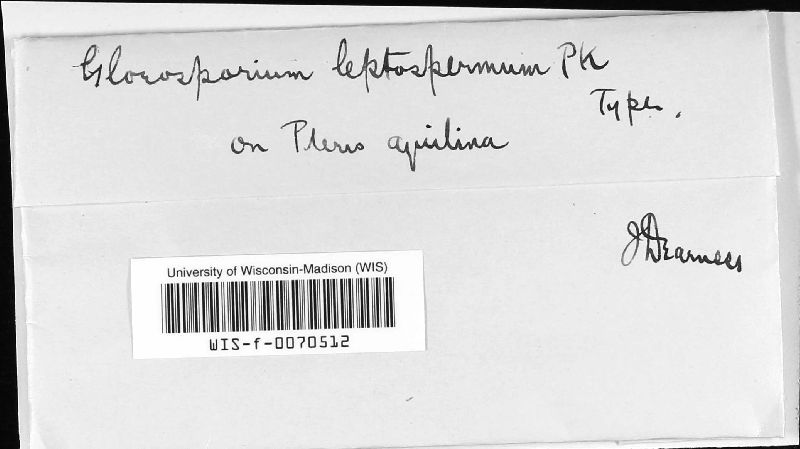 Gloeosporium leptospermum PK
Type.
on Pteris aquilina
J Dearness
University of Wisconsin-Madison (WIS)
WIS-f-0070512